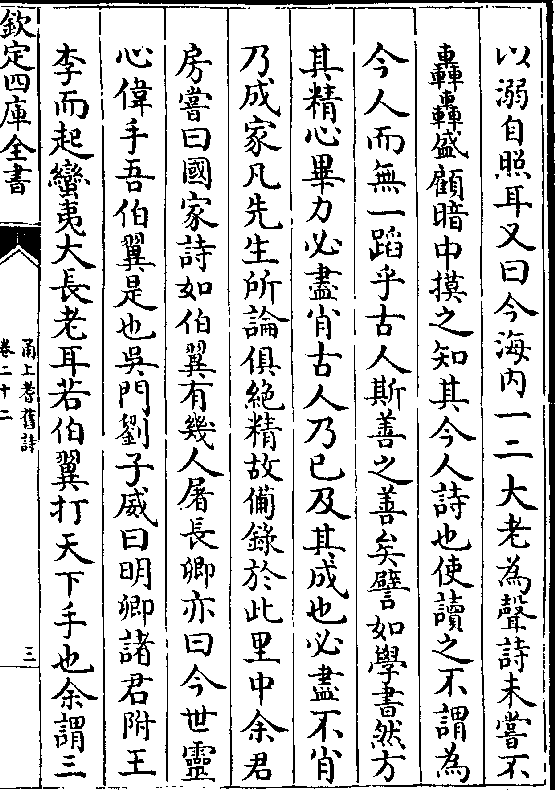 以溺自照耳又曰今海内一二大老為聲詩未嘗不
轟轟盛顧暗中摸之知其今人詩也使讀之不謂為
今人而無一蹈乎古人斯善之善矣譬如學書然方
其精心畢力必盡肖古人乃已及其成也必盡不肖
乃成家凡先生所論俱絶精故備錄於此里中余君
房嘗曰國家詩如伯翼有幾人屠長卿亦曰今世靈
心偉手吾伯翼是也吳門劉子威曰明卿諸君附王
李而起蠻夷大長老耳若伯翼打天下手也余謂三
欽定四庫全書
甬上耆舊詩
卷二十二
三